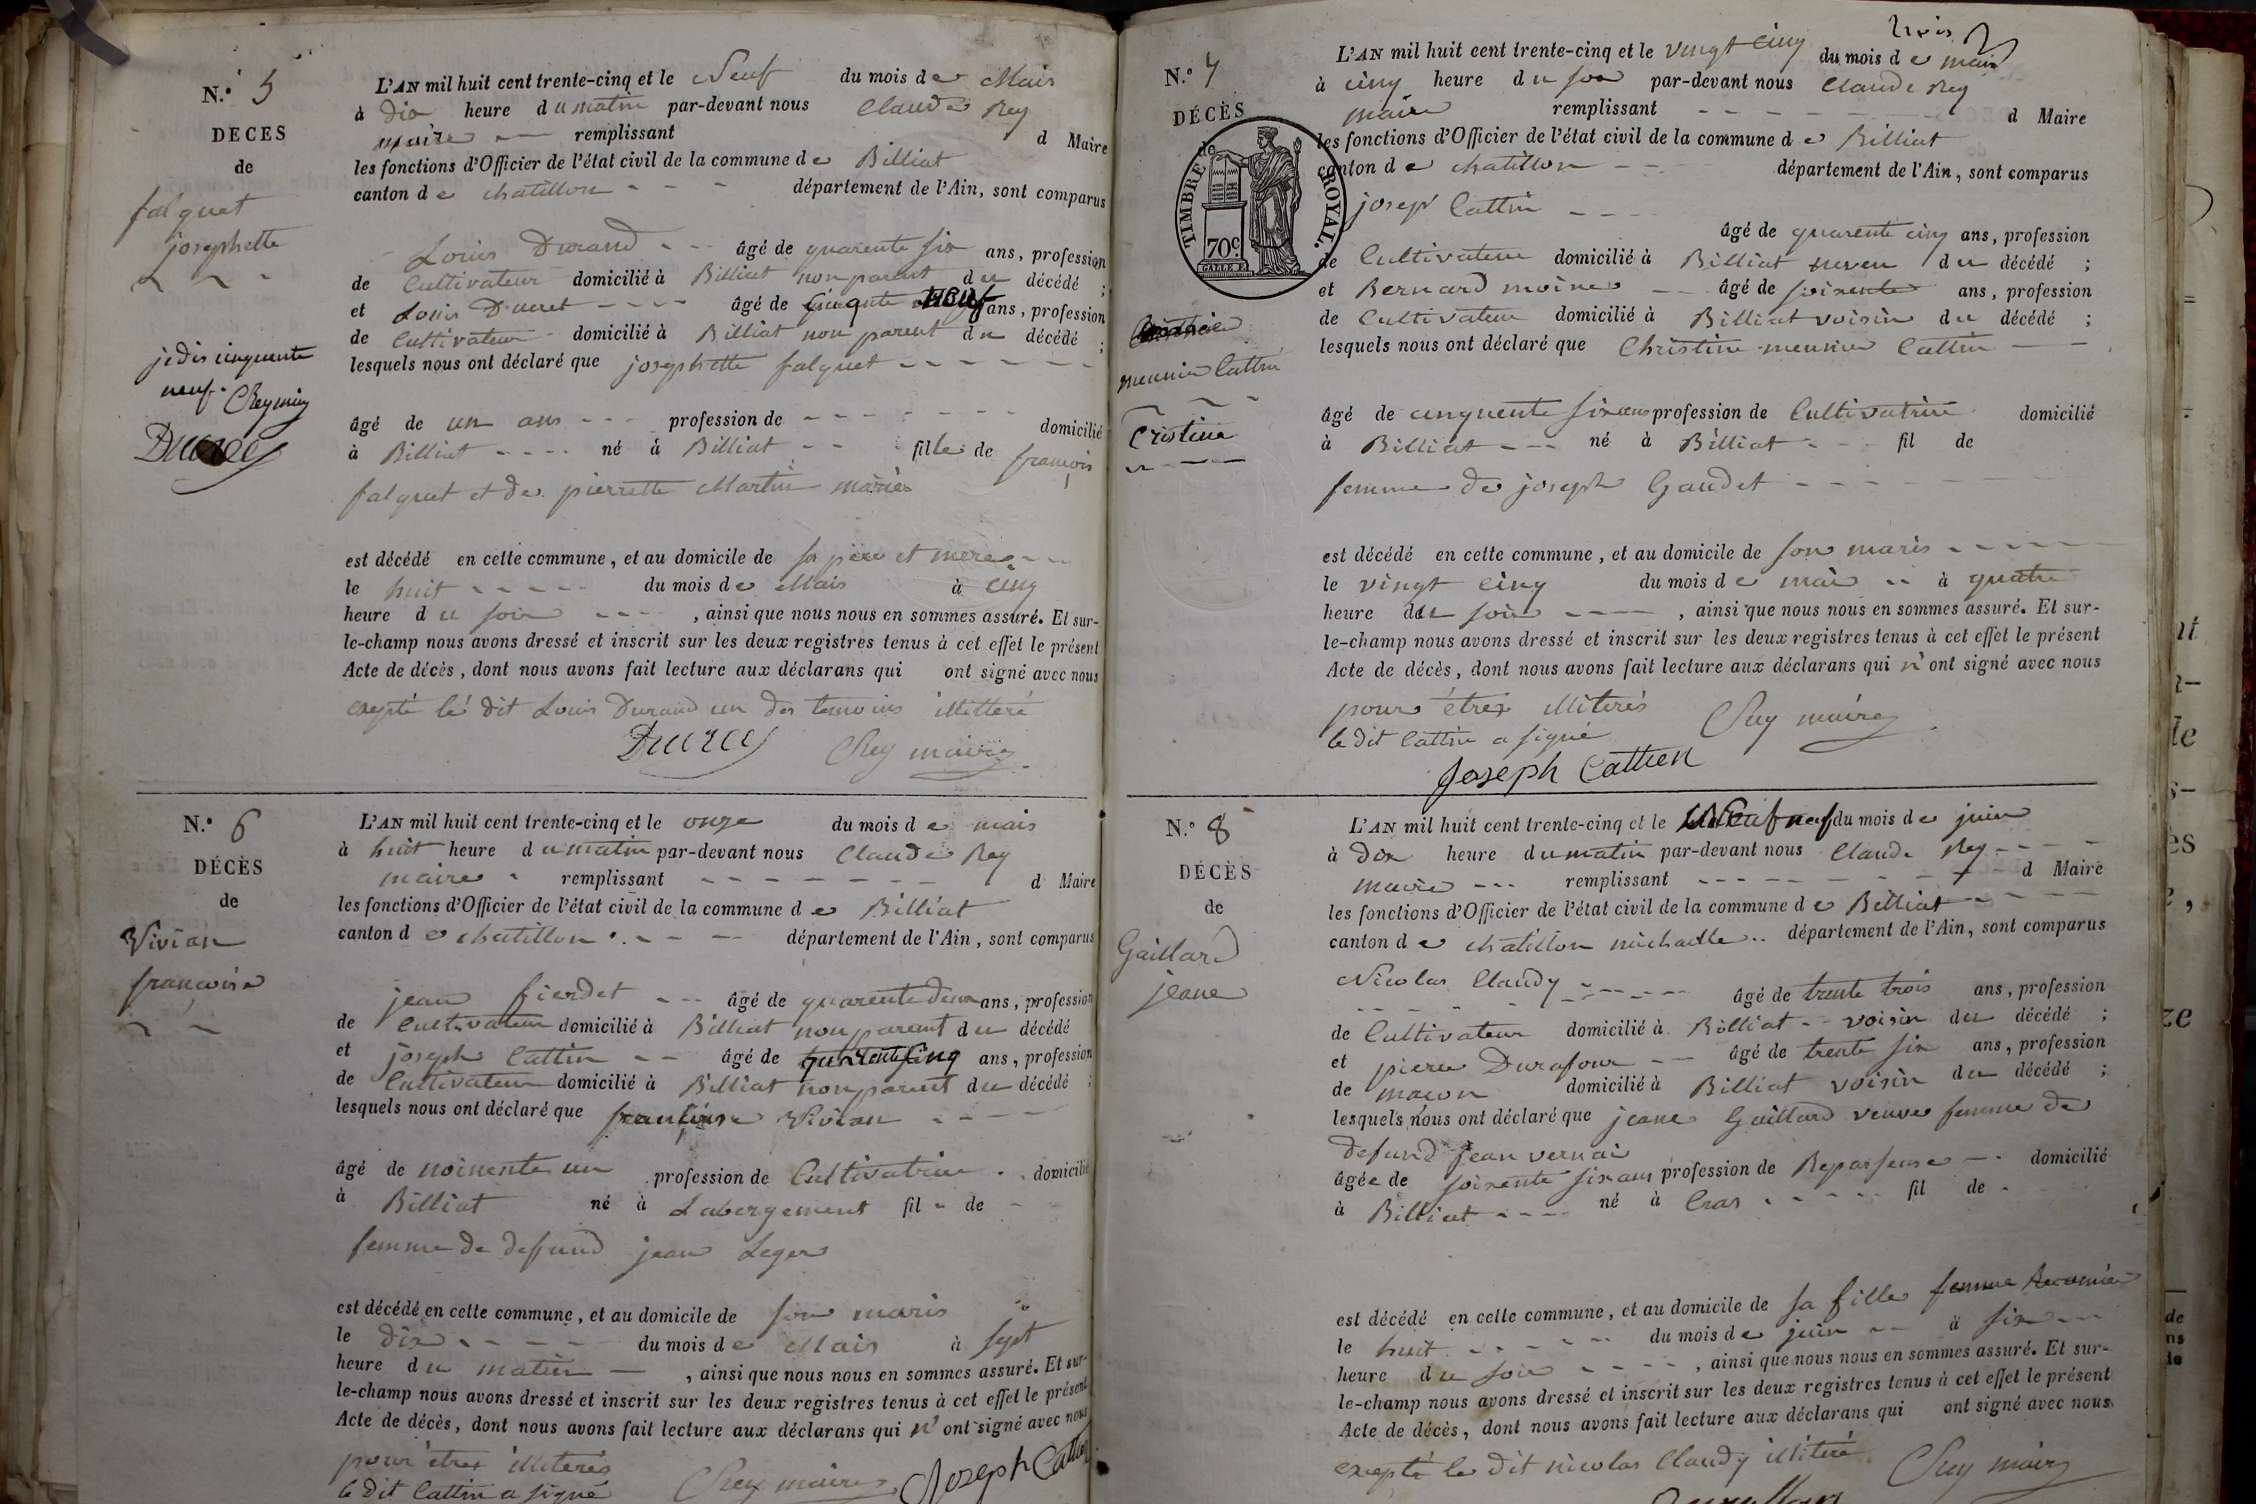 N.° 5
DÉCÈS
de
falquet
josephette
je dis cinquente
neuf. C Rey maire
L'AN mil huit cent trente-cinq et le Neuf du mois de Mais
à dix heure du matin par-devant nous Claude Rey
maire remplissant d Maire
les fonctions d'Officier de l'état civil de la commune de Billiat
canton de chatillon - - - département de l'Ain, sont comparus
Louis Durand - - âgé de quarente six ans, profession
de Cultivateur domicilié à Billiat non parent du décédé ;
et Louis Ducret - - - - âgé de Cinqute neuf ans, profession
de Cultivateur domicilié à Billiat non parent du décédé ;
lesquels nous ont déclaré que josephette falquet - - - - - -
âgé de un ans - - - profession de - - - - - - - domicilié
à Billiat - - - - né à Billiat - - fille de françois
falquet et de pierrette Martin mariés
est décédé en cette commune, et au domicile de sa père et mère - -
le huit - - - - - du mois de Mais à cinq
heure du soir - - - - , ainsi que nous nous en sommes assuré. Et sur-
le-champ nous avons dressé et inscrit sur les deux registres tenus à cet effet le présent
Acte de décès, dont nous avons fait lecture aux déclarans qui ont signé avec nous
exepté le dit Louis Durand un des temoins illitteré
C Rey maire
N.° 6
DÉCÈS
de
Vivian
françoise
L'AN mil huit cent trente-cinq et le onze du mois de mais
à huit heure du matin par-devant nous Claude Rey
maire remplissant - - - - - - - d Maire
les fonctions d'Officier de l'état civil de la commune de Billiat
canton de chatillon - - - département de l'Ain, sont comparus
jean fierdet - - - âgé de quarente deux ans, profession
de Cultivateur domicilié à Billiat non parent du décédé
et joseph Cattin - - âgé de quarente cinq ans, profession
de Cultivateur domicilié à Billiat non parent du décédé ;
lesquels nous ont déclaré que françoise Vivian - - - -
âgé de noinente un profession de Cultivatrice . domicilié
à Billiat né à Labergement fil - de -
femme de deffund jean Leger
est décédé en cette commune, et au domicile de son maris
le dix - - - - - du mois de Mais à sept
heure du matin - , ainsi que nous nous en sommes assuré. Et sur-
le-champ nous avons dressé et inscrit sur les deux registres tenus à cet effet le présent
Acte de décès, dont nous avons fait lecture aux déclarans qui n' ont signé avec nous
pour êtres illiterés
le dit Cattin a signé C Rey maire Joseph Cattin
N.° 7
DÉCÈS
de
TIMBRE ROYAL.
70c.
meunier Cattin
Cristine
trois
L'AN mil huit cent trente-cinq et le vingt cinq du mois de mais
à cinq heure du soir par-devant nous Claude Rey
maire remplissant - - - - - - - d Maire
les fonctions d'Officier de l'état civil de la commune de Billiat
canton de chatillon - - département de l'Ain, sont comparus
joseph Cattin - - - -
âgé de quarente cinq ans, profession
de Cultivateur domicilié à Billiat neveu du décédé ;
et Bernard moine - - âgé de soixente ans, profession
de Cultivateur domicilié à Billiat voisin du décédé ;
lesquels nous ont déclaré que Christine meunier Cattin - -
âgé de cinquente six ans profession de Cultivatrice domicilié
à Billiat - - - né à Billiat - - - fil de
femme de joseph Gaudet - - - -
est décédé en cette commune, et au domicile de son maris - - - - -
le vingt cinq du mois de mai - - à quatre
heure du soir - - - - , ainsi que nous nous en sommes assuré. Et sur-
le-champ nous avons dressé et inscrit sur les deux registres tenus à cet effet le présent
Acte de décès, dont nous avons fait lecture aux déclarans qui n' ont signé avec nous
pour êtres illiterés C Rey maire
le dit Cattin a signé
Joseph Cattien
N.° 8
DÉCÈS
de
Gaillard
jeane
L'AN mil huit cent trente-cinq et le neuf du mois de juin
à dix heure du matin par-devant nous Claude Rey - - - -
maire - - - remplissant - - - - - - - - d Maire
les fonctions d'Officier de l'état civil de la commune de Billiat - - - - -
canton de chatillon michaille - - département de l'Ain, sont comparus
Nicolas Claudy - - - - - - âgé de trente trois ans, profession
de Cultivateur domicilié à Billiat - - voisin du décédé ;
et pierre Durafour - - âgé de trente six ans, profession
de maçon domicilié à Billiat voisin du décédé ;
lesquels nous ont déclaré que jeane Gaillard veuve femme de
defund jean vernai
âgée de soixente six ans profession de Repasseuse - - domicilié
à Billiat - - - - né à Cras - - - - - fil de -
est décédé en cette commune, et au domicile de sa fille femme
le huit - - - - - du mois de juin - - à six - - -
heure du soir - - - - , ainsi que nous nous en sommes assuré. Et sur-
le-champ nous avons dressé et inscrit sur les deux registres tenus à cet effet le présent
Acte de décès, dont nous avons fait lecture aux déclarans qui ont signé avec nous
exepté le dit nicolas Claudy illitéré C Rey maire